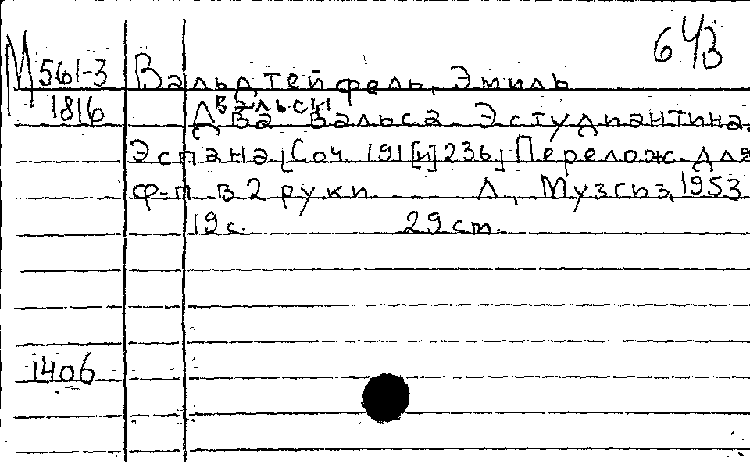 643
М 561-3 Вальдтейфель, Эмиль
1816 вальсы
Два вальса. Эстудиантина.
Эспана. [Соч. 191 [и] 236] Перелож. для
ф-п. в 2 руки. Л., Музгиз, 1953
19 с. 29 см.
1406